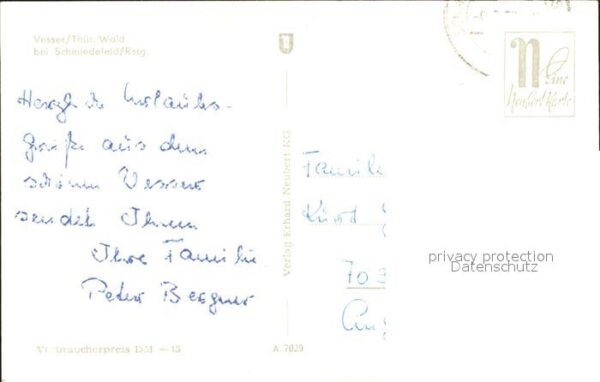 Vesser/Thür. Wald
bei Schmiedefeld/Rstg.
Herzliche Urlaubs-
grüße aus dem
schönen Vesser
sendet Ihnen
Ihre Familie
Peter Bergner
Verbraucherpreis DM – 15
Verlag Erhard Neubert KG
A 7029
Eine
Neubert Karte
Familie
Kurt
703
privacy protection
Datenschutz